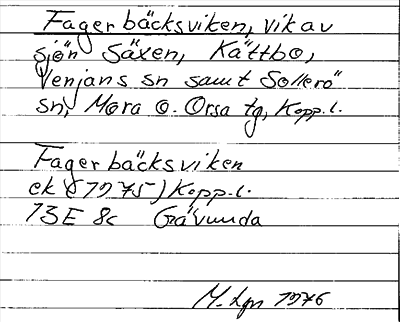 Fagerbäcksviken, vik av
sjön Säxen, Kättbo,
Venjans sn samt Sollerö
sn, Mora o. Orsa tg, Kopp.l.
Fagerbäcksviken
ek (1975) Kopp.l.
13E 8c Gävunda
M. Lgn 1976